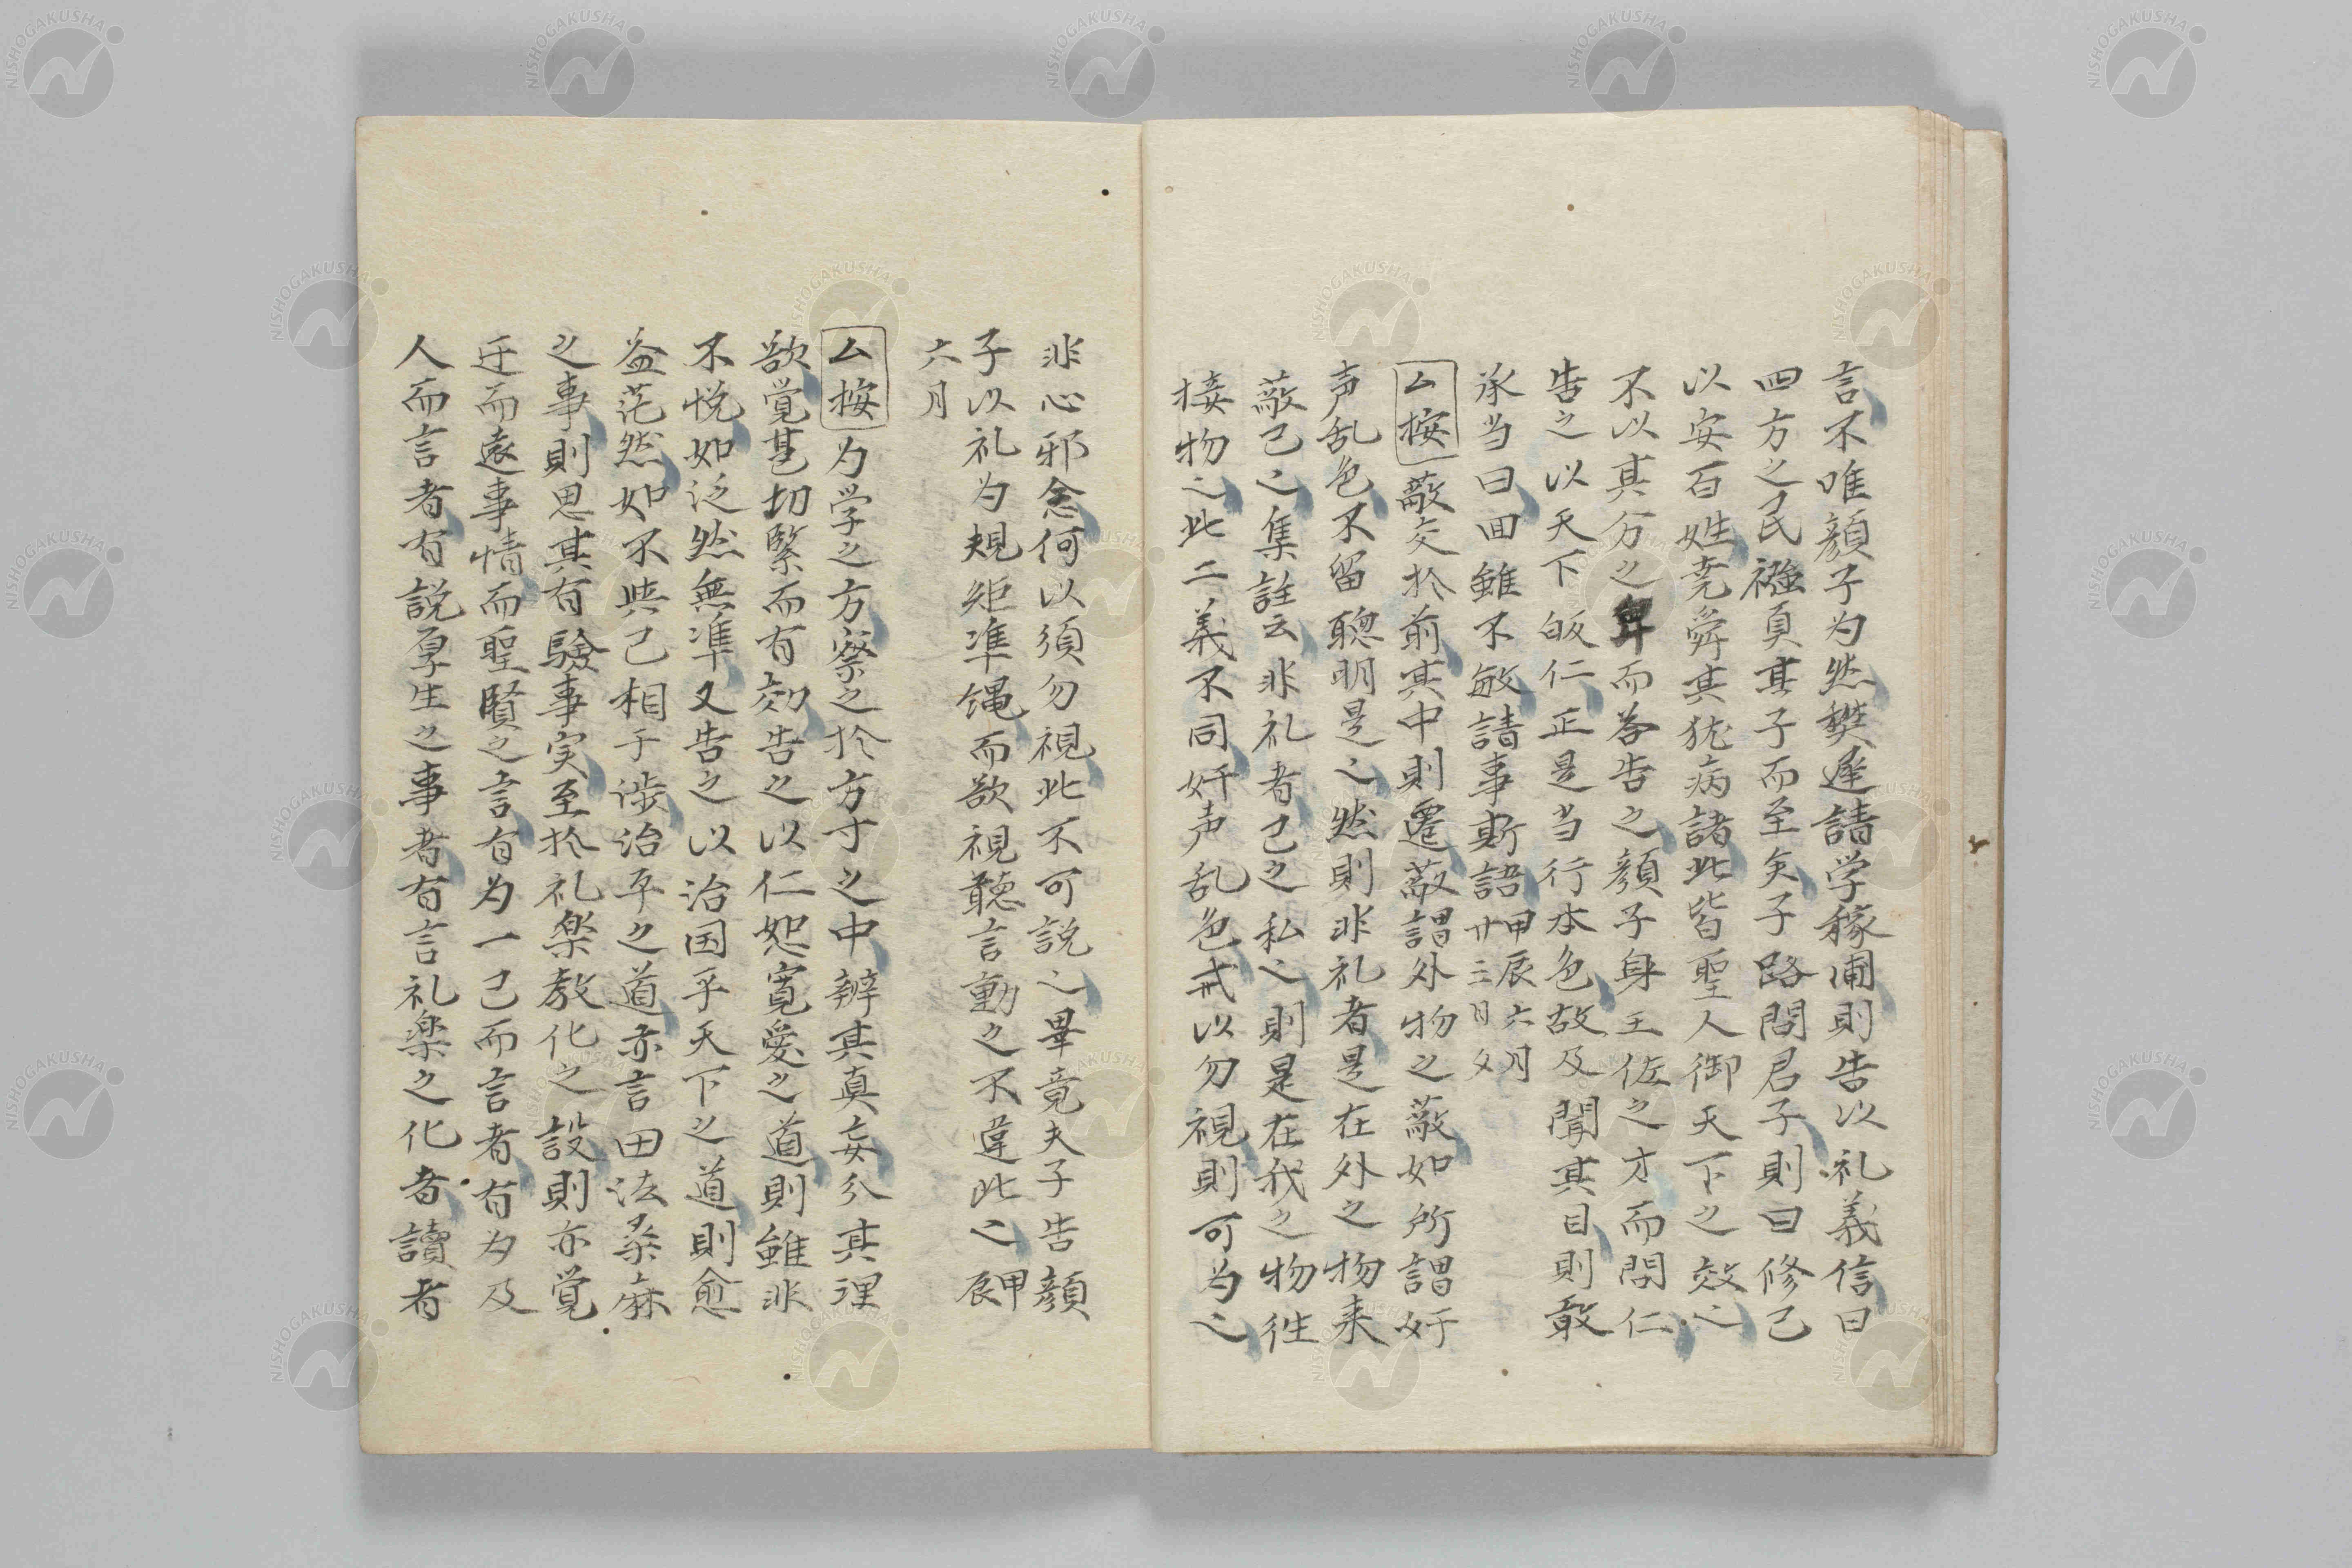 言不唯顔子为然樊遅請学稼圃則告以礼義信曰
四方之民襁負其子而至矣子路問君子則曰修己
以安百姓尭舜其犹病諸此皆聖人御天下之效也
不以其分之卑而答告之顔子身王佐之才而問仁
告之以天下皈仁正是当行本色故及聞其目則敢
承当曰回雖不敏請事斯語甲辰六月
廿三日夕
厶按蔽交於前其中則遷蔽謂外物之蔽如所謂奸
声乱色不留聰明是也然則非礼者是在外之物来
蔽己也集註云非礼者己之私也則是在我之物徃
接物也此二義不同奸声乱色戒以勿視則可为也
非心邪念何以須勿視此不可説也畢竟夫子告顔
子以礼为規矩準绳而欲視聴言動之不違此也甲辰
六月
厶按为学之方察之於方寸之中辨其真妄分其理
欲覚甚切緊而有効告之以仁恕寛愛之道則雖非
不悦如泛然無準又告之以治国平天下之道則愈
益茫然如不與己相干渉治平之道亦言田法桑麻
之事則思其有驗事实至於礼楽教化之設則亦覚
迂而遠事情而聖賢之言有为一己而言者有为及
人而言者有説厚生之事者有言礼楽之化者讀者
NISHOGAKUSHA